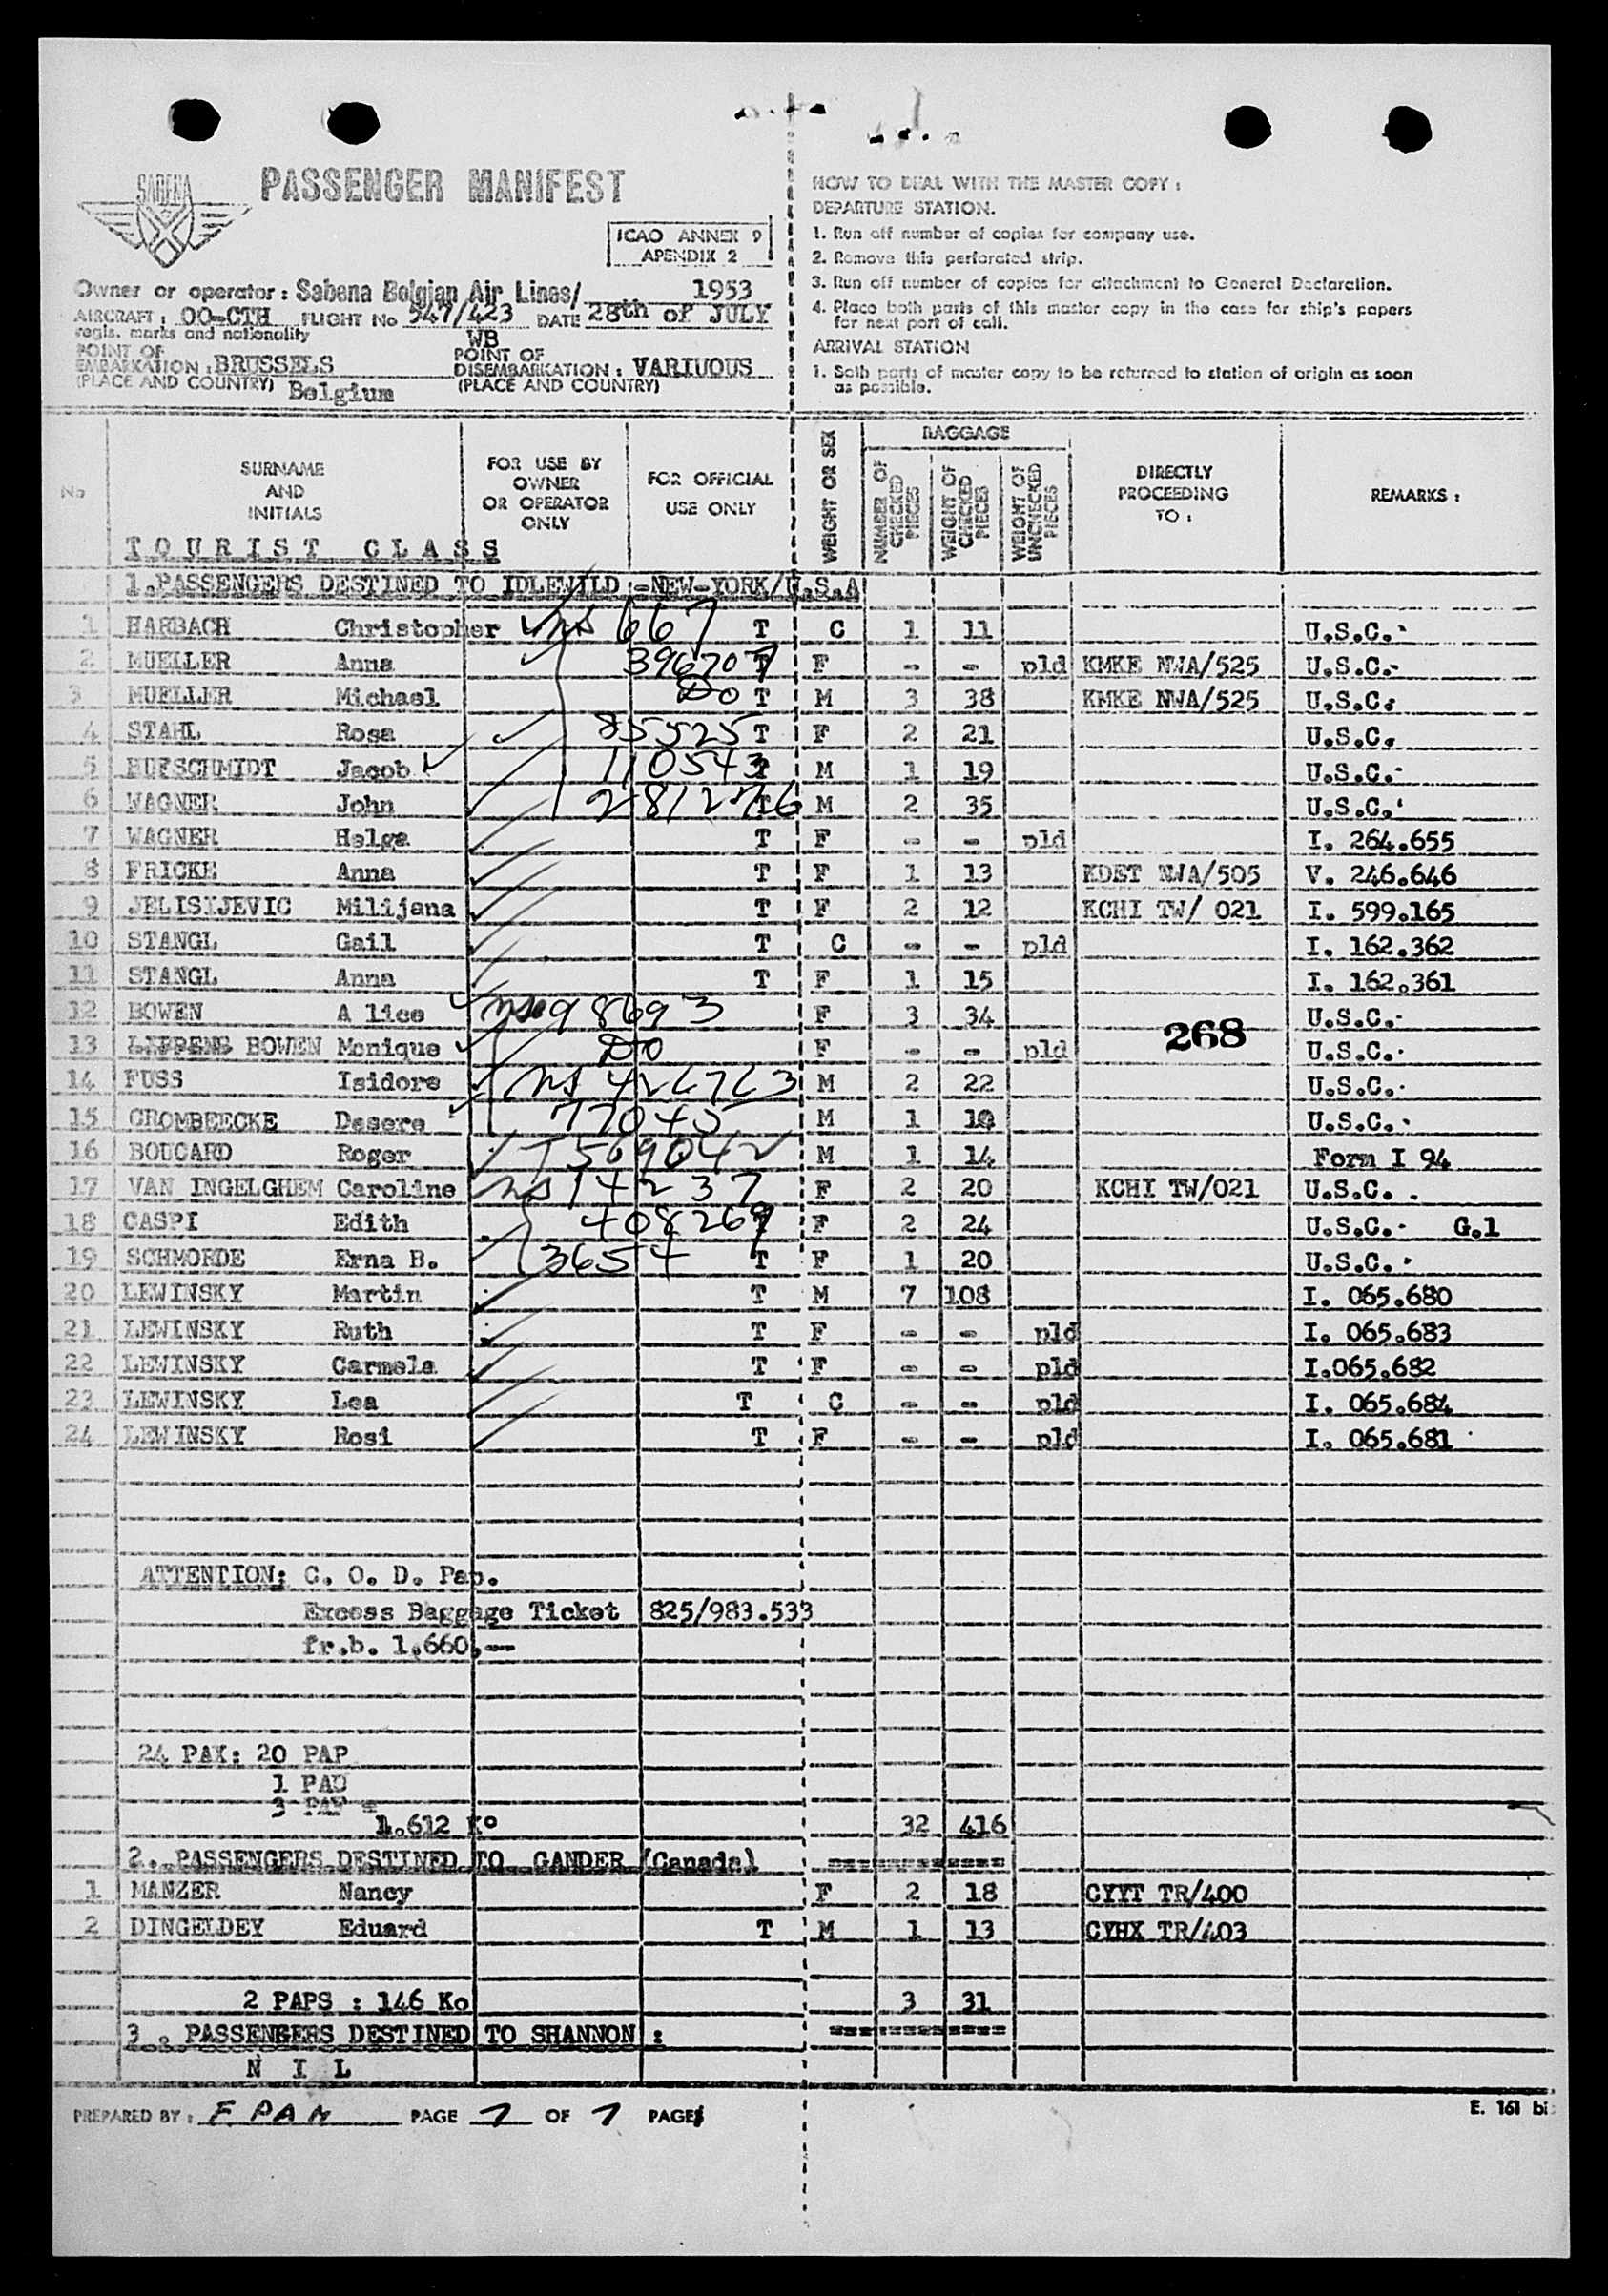 SABENA
PASSENGER MANIFEST
ICAO ANNEX 9
APENDIX 2
Owner or operator : Sabena Belgian Air Lines/ 1953
AIRCRAFT : OO-CTH FLIGHT No 547/423 DATE 28th of JULY
regis. marks and nationality WB
POINT OF EMBARKATION : BRUSSELS POINT OF DISEMBARKATION : VARIUOUS
(PLACE AND COUNTRY) Belgium (PLACE AND COUNTRY)
HOW TO DEAL WITH THE MASTER COPY :
DEPARTURE STATION.
1. Run off number of copies for company use.
2. Remove this perforated strip.
3. Run off number of copies for attachment to General Declaration.
4. Place both parts of this master copy in the case for ship's papers
for next port of call.
ARRIVAL STATION
1. Both parts of master copy to be returned to station of origin as soon
as possible.
No
SURNAME AND INITIALS
FOR USE BY OWNER OR OPERATOR ONLY
FOR OFFICIAL USE ONLY
WEIGHT OR SEX
BAGGAGE
NUMBER OF CHECKED PIECES
WEIGHT OF CHECKED PIECES
WEIGHT OF UNCHECKED PIECES
DIRECTLY PROCEEDING TO :
REMARKS :
TOURIST CLASS
1.PASSENGERS DESTINED TO IDLEWILD -NEW-YORK/U.S.A
1 HARBACH Christopher 667 T C 1 11 U.S.C.
2 MUELLER Anna 396707 T F - - pld KMKE NWA/525 U.S.C.-
3 MUELLER Michael Do T M 3 38 KMKE NWA/525 U.S.C.
4 STAHL Rosa 85525 T F 2 21 U.S.C.
5 HUFSCHMIDT Jacob 110543 T M 1 19 U.S.C.-
6 WAGNER John T M 2 35 U.S.C.
7 WAGNER Helga T F - - pld I. 264.655
8 FRICKE Anna T F 1 13 KDET NWA/505 V. 246.646
9 JELISIJEVIC Milijana T F 2 12 KCHI TW/ 021 I. 599.165
10 STANGL Gail T C - - pld I. 162.362
11 STANGL Anna T F 1 15 I. 162.361
12 BOWEN A lice 98693 F 3 34 U.S.C.-
268
13 LIPPENS BOWEN Monique Do F - - pld U.S.C.
14 FUSS Isidore M 2 22 U.S.C.
15 CROMBEECKE Desere 77045 M 1 10 U.S.C.
16 BOUCARD Roger M 1 14 Form I 94
17 VAN INGELGHEM Caroline 14237 F 2 20 KCHI TW/021 U.S.C. .
18 CASPI Edith 408269 T F 2 24 U.S.C.- G.1
19 SCHMORDE Erna B. 3654 T F 1 20 U.S.C.
20 LEWINSKY Martin T M 7 108 I. 065.680
21 LEWINSKY Ruth T F - - pld I. 065.683
22 LEWINSKY Carmela T F - - pld I.065.682
23 LEWINSKY Lea T C - - pld I. 065.684
24 LEWINSKY Rosi T F - - pld I. 065.681
ATTENTION: C. O. D. Pap.
Excess Baggage Ticket 825/983.533
fr.b. 1.660.--
24 PAX: 20 PAP
1 PAD
3 PAF =
1.612 Ko 32 416
2. PASSENGERS DESTINED TO GANDER (Canada) ============
1 MANZER Nancy F 2 18 CYYT TR/400
2 DINGELDEY Eduard T M 1 13 CYHX TR/403
2 PAPS : 146 Ko 3 31
3 . PASSENGERS DESTINED TO SHANNON : ============
N I L
PREPARED BY : F. PAN PAGE 1 OF 1 PAGES
E. 161 bis